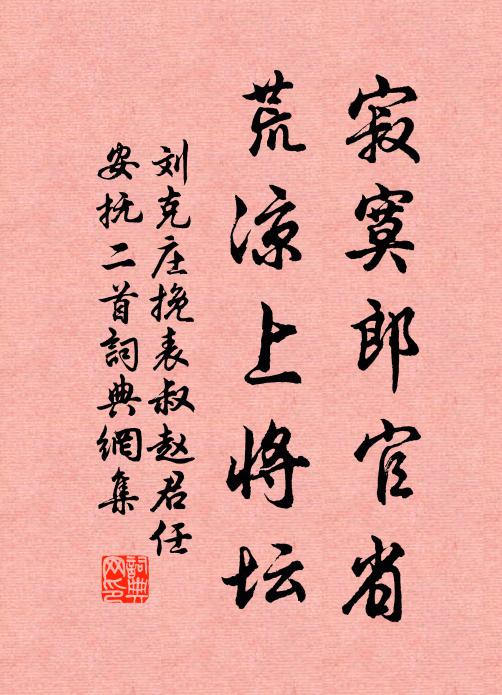 寂寞郎官省
荒凉上将坛
刘克庄挽表叔赵君任
安抚二首詞典網集
詞典网印